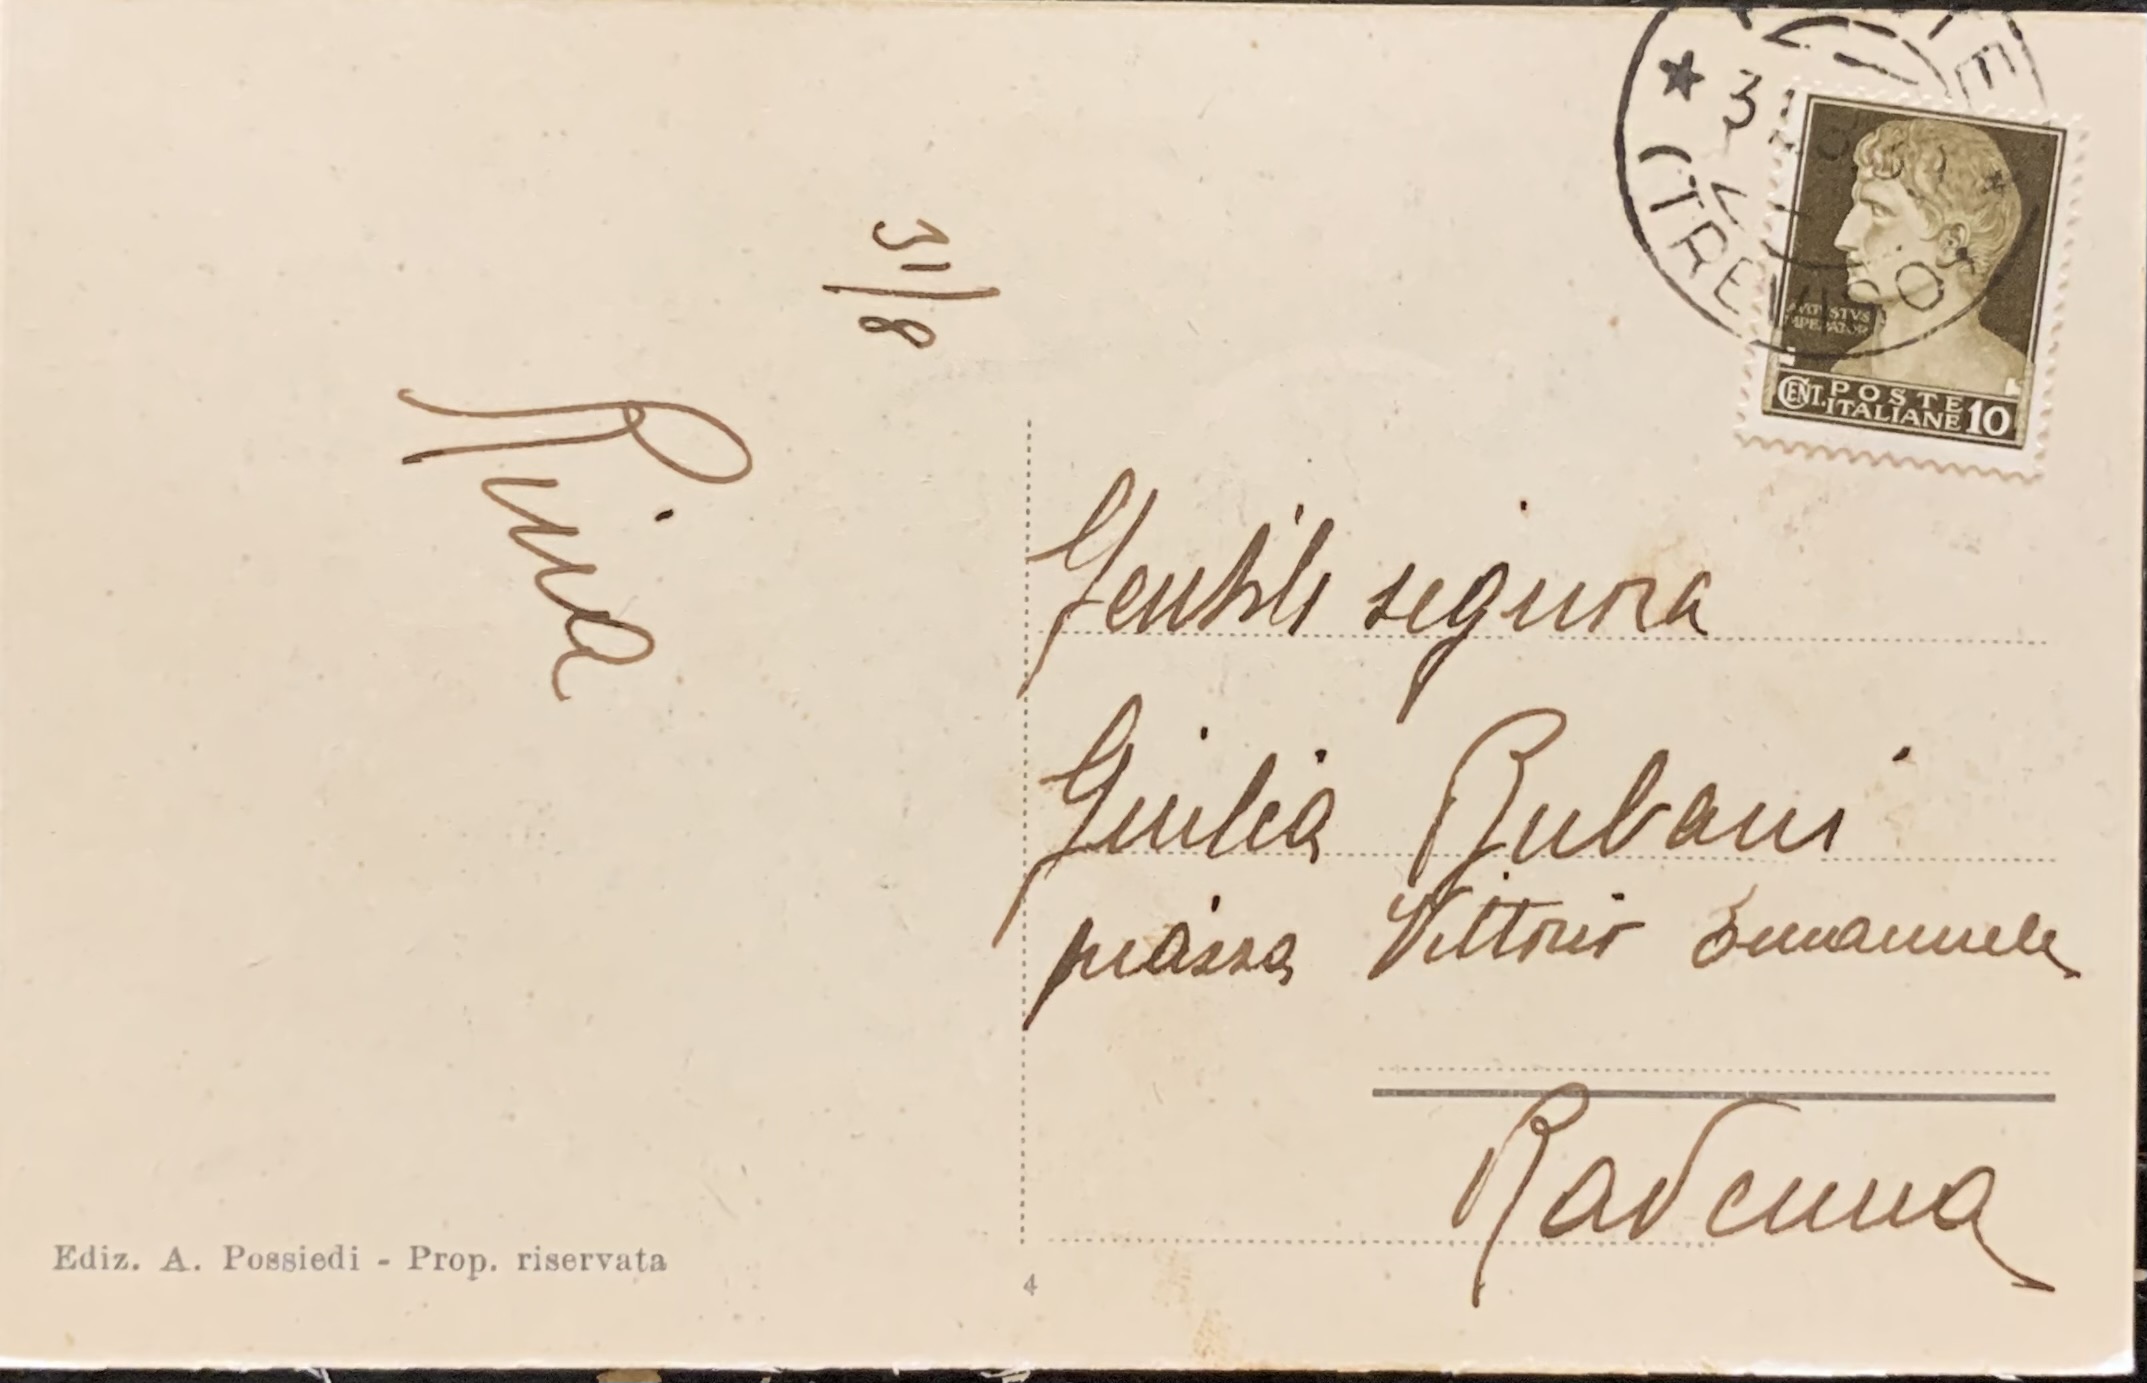 31/8
Rina
Gentile signora
Giulia Rubani
piazza Vittorio Emanuele
Ravenna
Ediz. A. Possiedi - Prop. riservata
4
(TREVISO)
AVGVSTVS
IMPERATOR
CENT. POSTE ITALIANE 10